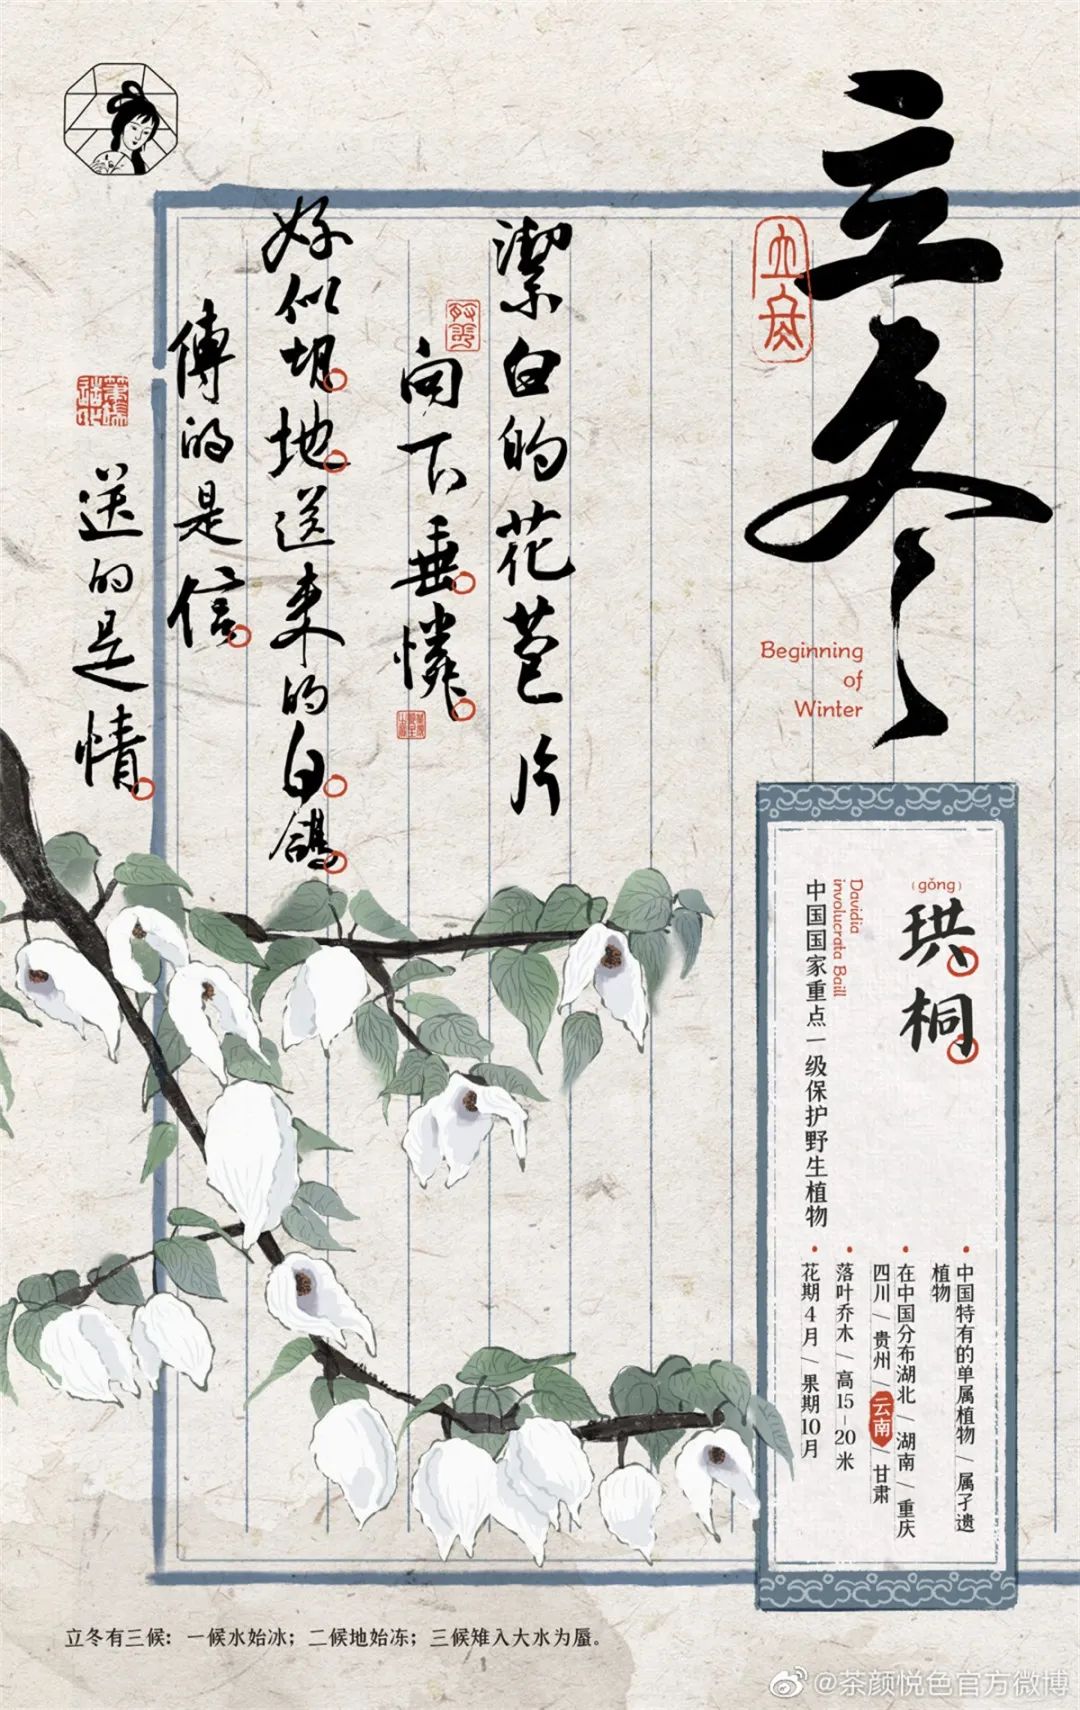 立冬
立冬
Beginning
of
Winter
潔白的花苞片
向下垂憐
好似胡地送来的白鴿
傳的是信
送的是情
(gǒng)
珙桐
Davidia
involucrata Baill
中国国家重点一级保护野生植物
中国特有的单属植物/属孑遗
植物
在中国分布湖北/湖南/重庆
四川/贵州/云南/甘肃
落叶乔木/高15-20米
花期4月/果期10月
立冬有三候：一候水始冰；二候地始冻；三候雉入大水为蜃。
@茶颜悦色官方微博